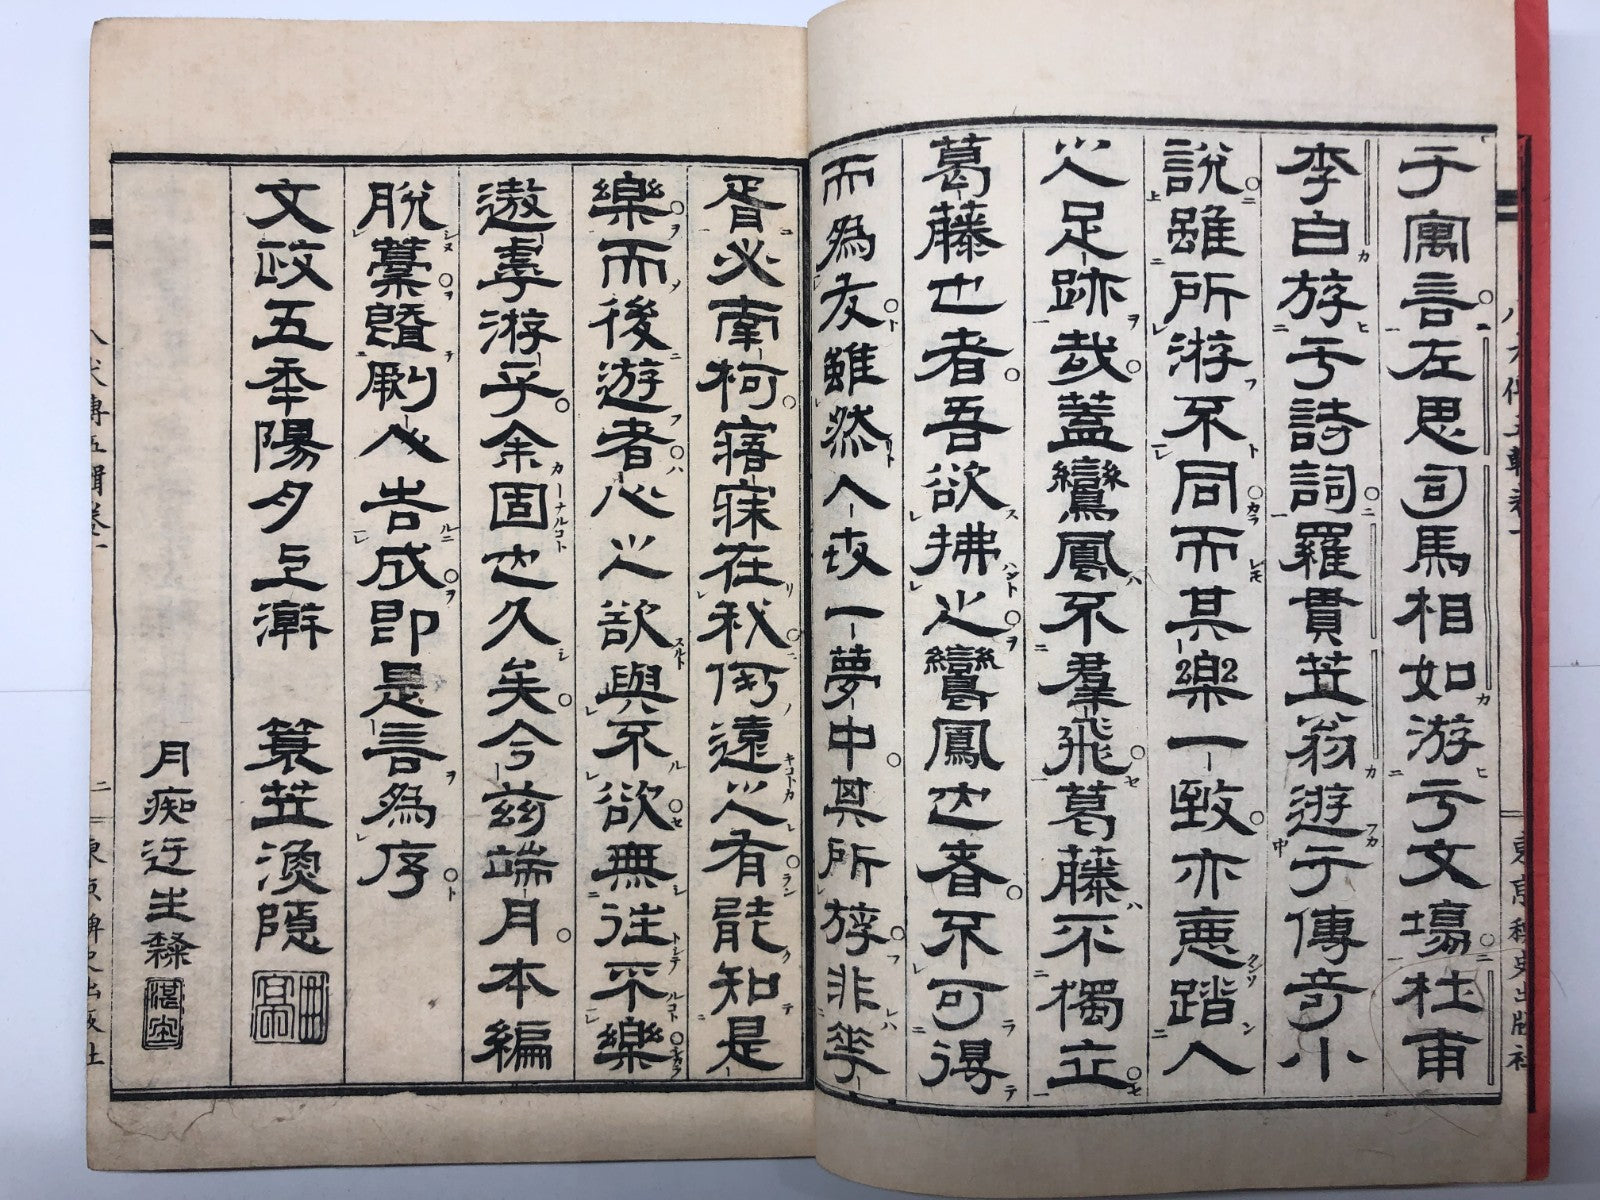 于寓言左思司馬相如游于文場杜甫
李白游于詩詞羅貫笠翁遊于傳奇小
說雖所游不同而其樂一致亦悪踏人
之足跡哉蓋鸞鳳不羣飛葛藤不獨立
葛藤也者吾欲拂之鸞鳳也者不可得
而為友雖然人世一夢中其所游非華
胥必南柯寤寐在我何遠之有能知是
樂而後遊者心之欲與不欲無往不樂
遨乎游乎余固也久矣今茲端月本編
脫藁曁剞人告成即是言為序
文政五年陽月上澣 簑笠漁隱
月痴迂生隸
八犬傳五輯卷一
二
東京稗史出版社